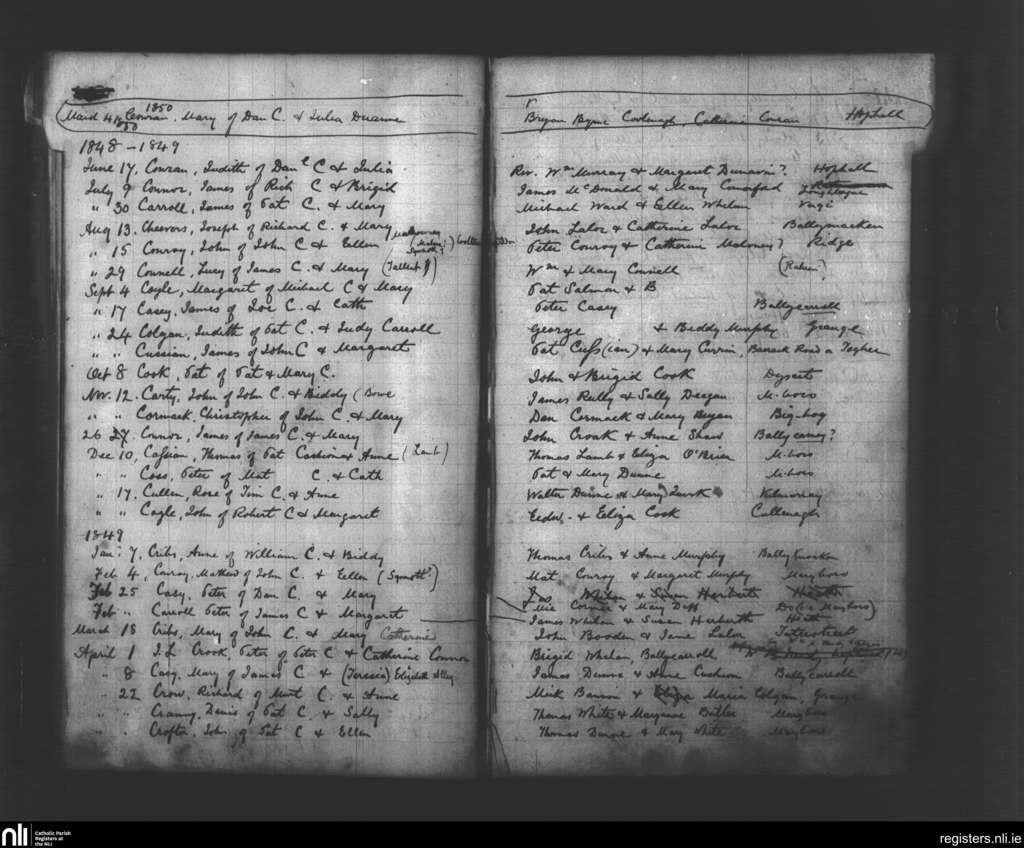 1850
March 4 Conran, Mary of Dan C. & Julia Duanne Bryan Byrne Coolnagh, Catherine Conran Hophall
50
1848 - 1849
June 17, Conran, Judith of Danl C & Julia Rev. Wm Murray & Margaret Hophall
July 9 Connor, James of Rich C & Brigid James McDonald & Mary Comerford
" 30 Carroll, James of Pat C. & Mary Michael Ward & Ellen Whelan
Aug 13. Cheevers, Joseph of Richard C. & Mary John Lalor & Catherine Lalor Ballymacken
" 15 Conroy, John of John C & Ellen Peter Conroy & Catherine Maloney? Ridge
" 29 Connell, Lucy of James C. & Mary (Tallent) Wm & Mary Connell (Raheen)
Sept 4 Coyle, Margaret of Michael C & Mary Pat Salmon & B
" 17 Casey, James of Joe C. & Cath Peter Casey Ballycarroll
" 24 Colgan, Judith of Pat C. & Judy Carroll George & Biddy Murphy Grange
" " Cussian, James of John C & Margaret Pat Cuss(ian) & Mary Currin, Barrack Road or Togher
Oct 8 Cook, Pat of Pat & Mary C. John & Brigid Cook Dysart
Nov. 12. Carty, John of John C. & Biddy (Bowe James Rally & Sally Deegan M-boro
" " Cormack, Christopher of John C. & Mary Dan Cormack & Mary Bryan Big-bog
26 27. Connor, James of James C. & Mary John Croak & Anne Shaw Ballycarney?
Dec 10, Cassian, Thomas of Pat Cashion & Anne (Lamb) Thomas Lamb & Eliza O'Brien M-boro
" " Coss, Peter of Mat C. & Cath Pat & Mary Dunne M-boro
" 17, Cullen, Rose of Tim C. & Anne Walter Dunne & Mary Quirk Kilmurray
" " Cagle, John of Robert C & Margaret & Eliza Cook Cullenagh
1849
Jan: 7, Cribs, Anne of William C. & Biddy Thomas Cribs & Anne Murphy Ballyknocken
Feb 4, Conroy, Mathew of John C. & Ellen (Synott?) Mat Conroy & Margaret Murphy Maryboro
Feb 25 Casy, Peter of Dan C. & Mary Jas Whelan & Susan Herberts Heath
Feb " Carroll Peter of James C & Margaret Mic Cormac & Mary Duff Do (i.e Maryboro)
James Whelan & Susan Herberth Heath
March 18 Cribs, Mary of John C. & Mary Catherine John Booden & Jane Lalor
April 1 Crook, Peter of Peter C & Catherine Connor Brigid Whelan, Ballycarroll
" 8 Casy, Mary of James C & (Teresia) Elizabeth Alley James Dunne & Anne Cushion Ballycarroll
" 22 Crow, Richard of C. & Anne Mick Bannon & Eliza Maria Colgan, Grange
" " Cranny, Denis of Pat C. & Sally Thomas White & Margaret Butler Maryboro
" " Crofton, John of Pat C & Ellen Thomas Dunne & Mary White Maryboro
nli Catholic Parish Registers at the NLI
registers.nli.ie